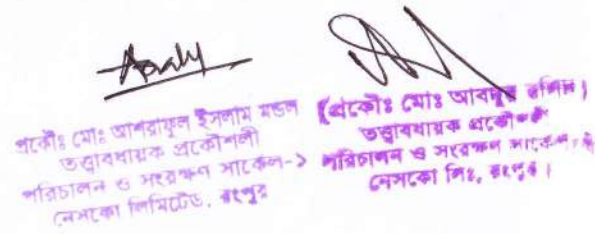 প্রকৌঃ মোঃ আশরাফুল ইসলাম মন্ডল
তত্ত্বাবধায়ক প্রকৌশলী
পরিচালন ও সংরক্ষণ সার্কেল-১
নেসকো লিমিটেড, রংপুর
(প্রকৌঃ মোঃ আবদুর রশিদ)
তত্ত্বাবধায়ক প্রকৌশলী
পরিচালন ও সংরক্ষণ সার্কেল
নেসকো লিঃ, রংপুর।